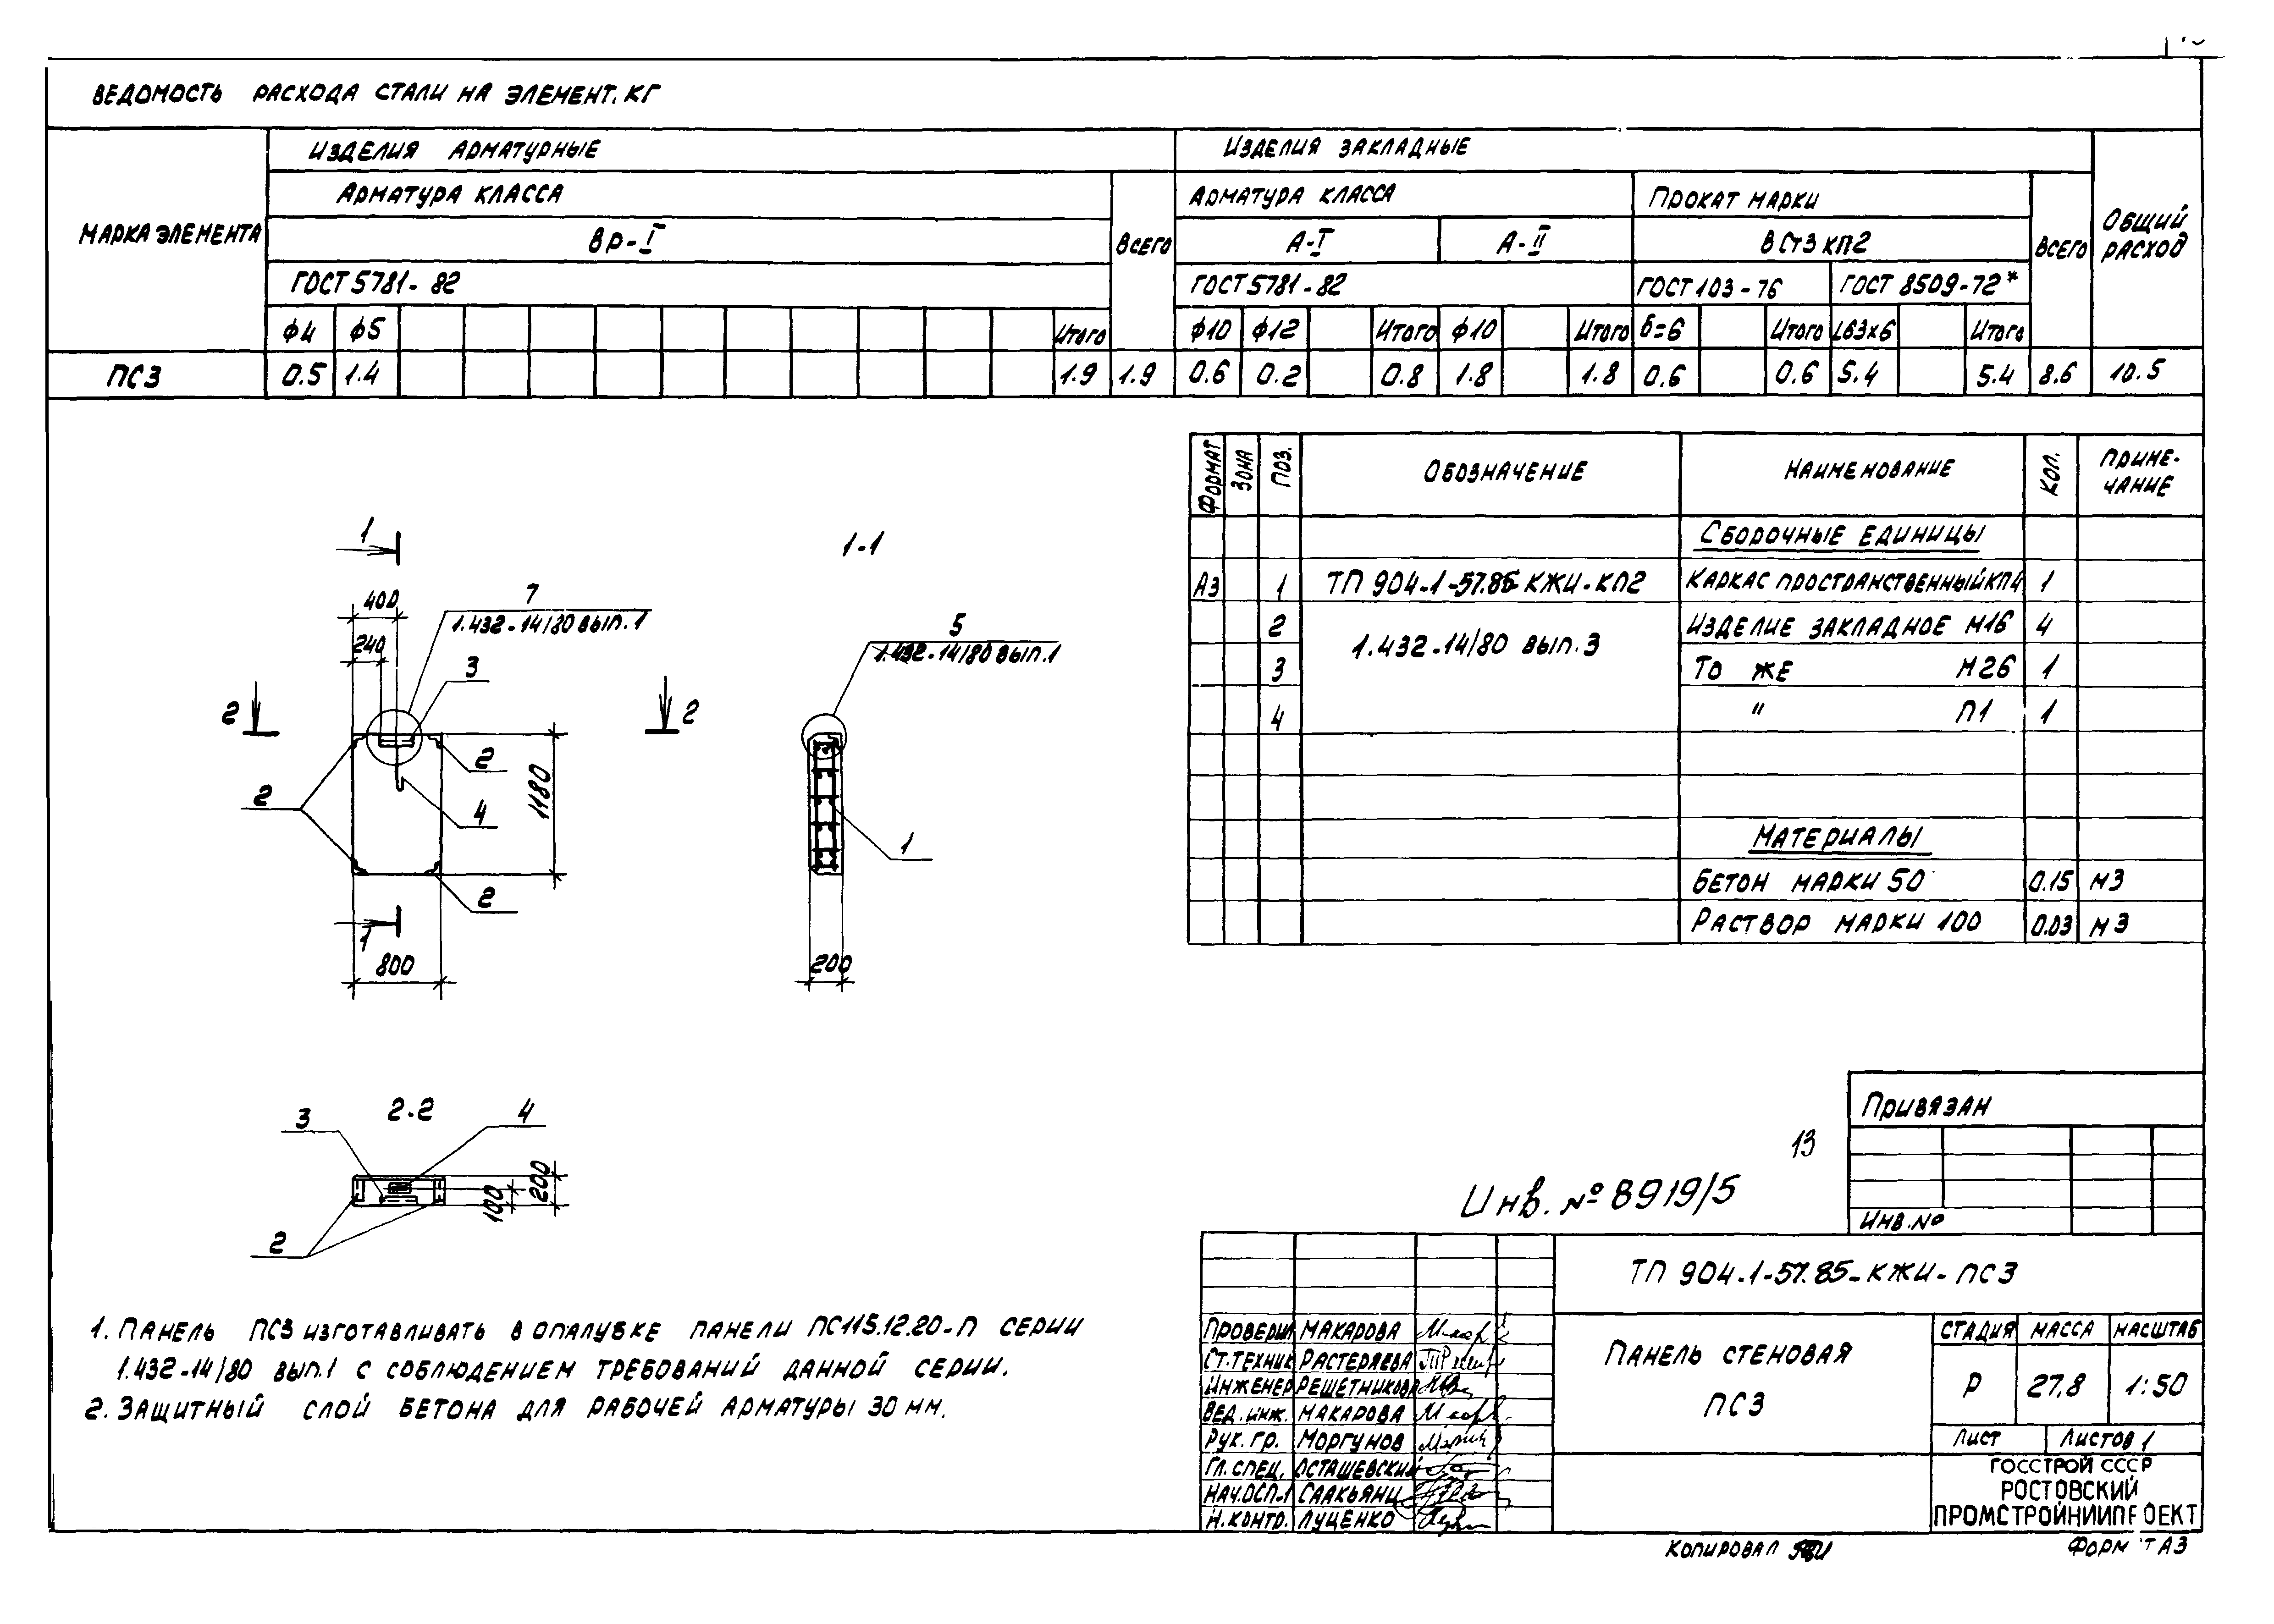 ВЕДОМОСТЬ РАСХОДА СТАЛИ НА ЭЛЕМЕНТ, КГ
МАРКА ЭЛЕМЕНТА
ИЗДЕЛИЯ АРМАТУРНЫЕ
ИЗДЕЛИЯ ЗАКЛАДНЫЕ
ОБЩИЙ РАСХОД
АРМАТУРА КЛАССА
ВСЕГО
АРМАТУРА КЛАССА
ПРОКАТ МАРКИ
ВСЕГО
Вр-I
А-I
А-II
ВСт3кп2
ГОСТ 5781-82
ГОСТ 5781-82
ГОСТ 103-76
ГОСТ 8509-72*
ϕ4 ϕ5 Итого ϕ10 ϕ12 Итого ϕ10 Итого δ=6 Итого L63x6 Итого
ПС3 0.5 1.4 1.9 1.9 0.6 0.2 0.8 1.8 1.8 0.6 0.6 5.4 5.4 8.6 10.5
ФОРМАТ ЗОНА ПОЗ. ОБОЗНАЧЕНИЕ НАИМЕНОВАНИЕ КОЛ. ПРИМЕ-
ЧАНИЕ
СБОРОЧНЫЕ ЕДИНИЦЫ
А3 1 ТП 904-1-57.85-КЖИ-КП2 КАРКАС ПРОСТРАНСТВЕННЫЙ 1
2 1.432-14/80 вып.3 ИЗДЕЛИЕ ЗАКЛАДНОЕ М16 4
3 ТО ЖЕ М26 1
4 " П1 1
МАТЕРИАЛЫ
БЕТОН МАРКИ 50 0.15 М3
РАСТВОР МАРКИ 100 0.03 М3
1
400
240
7
1.432-14/80 вып.1
3
2
2
2
2
4
2
1180
1
800
1-1
5
1.432-14/80 вып.1
1
200
2-2
3
4
2
100
200
1. ПАНЕЛЬ ПС3 ИЗГОТАВЛИВАТЬ В ОПАЛУБКЕ ПАНЕЛИ ПС115.12.20-П СЕРИИ
1.432-14/80 вып.1 С СОБЛЮДЕНИЕМ ТРЕБОВАНИЙ ДАННОЙ СЕРИИ.
2. ЗАЩИТНЫЙ СЛОЙ БЕТОНА ДЛЯ РАБОЧЕЙ АРМАТУРЫ 30 мм.
13
Инв. № 8919/5
ПРИВЯЗАН
ИНВ.№
ТП 904-1-57.85-КЖИ-ПС3
ПРОВЕРИЛ МАКАРОВА
СТ.ТЕХНИК РАСТЕРЯЕВА
ИНЖЕНЕР РЕШЕТНИКОВА
ВЕД. ИНЖ. МАКАРОВА
РУК. ГР. МОРГУНОВ
ГЛ. СПЕЦ. ОСТАШЕВСКИЙ
НАЧ.ОСП-1 СААКЬЯНЦ
Н.КОНТР. ЛУЦЕНКО
ПАНЕЛЬ СТЕНОВАЯ
ПС3
СТАДИЯ МАССА МАСШТАБ
Р 27.8 1:50
ЛИСТ ЛИСТОВ 1
ГОССТРОЙ СССР
РОСТОВСКИЙ
ПРОМСТРОЙНИИПРОЕКТ
КОПИРОВАЛ
ФОРМАТ А3